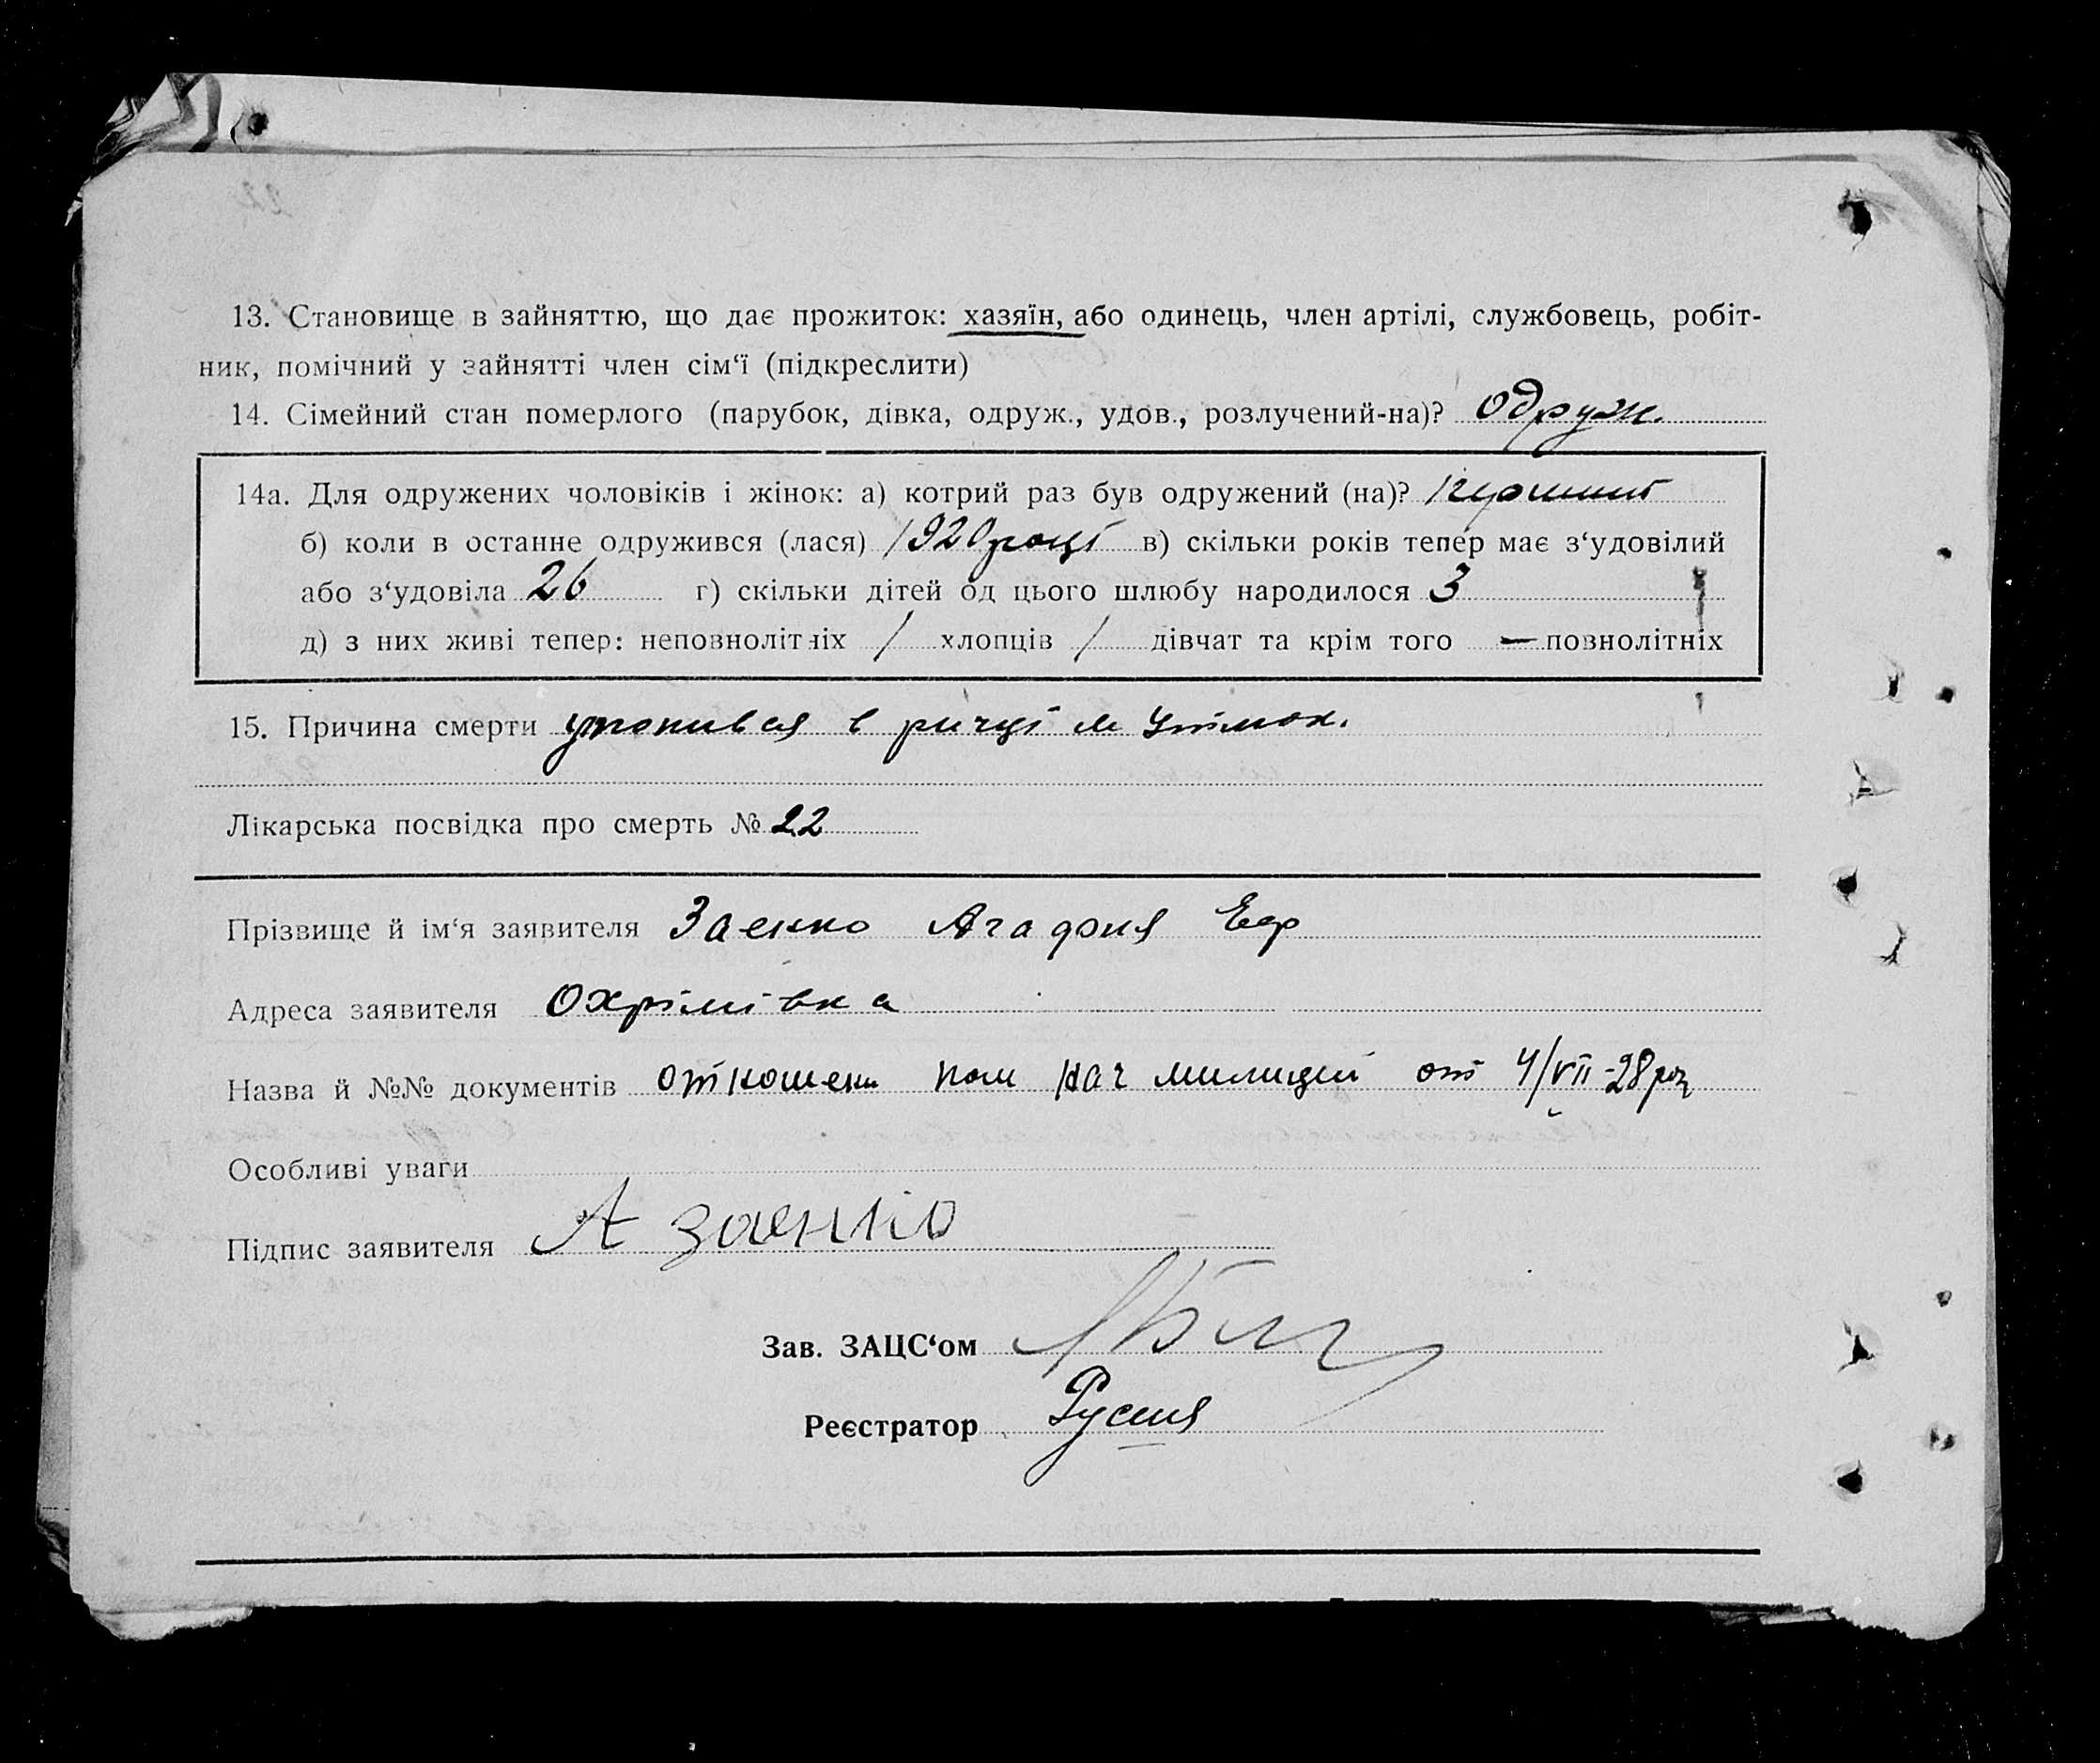 13. Становище в зайняттю, що дає прожиток: хазяїн, або одинець, член артілі, службовець, робіт-
ник, помічний у зайнятті член сім‘ї (підкреслити)
14. Сімейний стан померлого (парубок, дівка, одруж., удов., розлучений-на)? одруж.
14а. Для одружених чоловіків і жінок: а) котрий раз був одружений (на)?
б) коли в останнє одружився (лася) 1920 році в) скільки років тепер має з‘удовілий
або з‘удовіла 26 г) скільки дітей од цього шлюбу народилося 3
д) з них живі тепер: неповнолітніх / хлопців / дівчат та крім того — повнолітніх
15. Причина смерти утопився в ричці м
Лікарська посвідка про смерть № 22
Прізвище й ім‘я заявителя Заенко Агафия Еф
Адреса заявителя Охрімівка
Назва й №№ документів отношени пом нач милиции от 4/VII-28 рок
Особливі уваги
Підпис заявителя А Заенко
Зав. ЗАЦС‘ом
Реєстратор